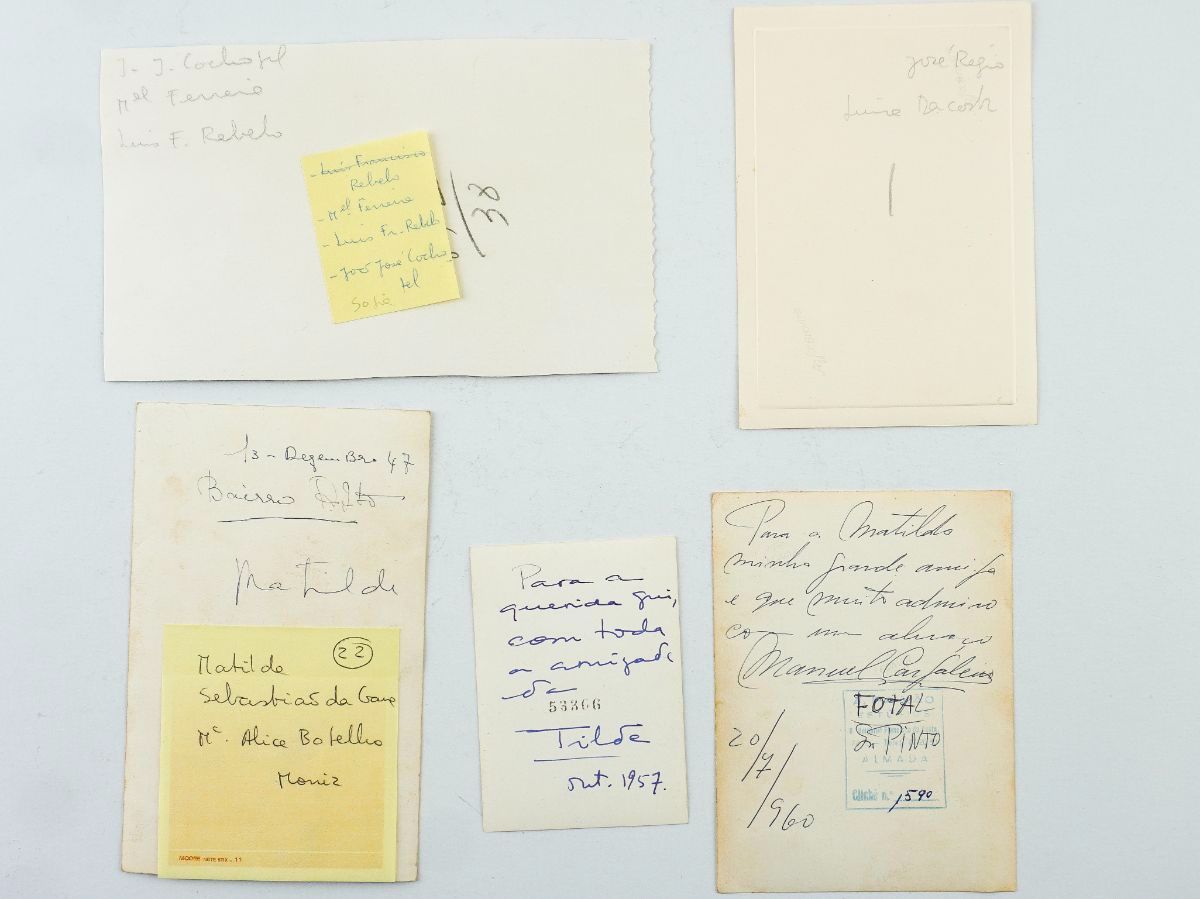 J. J. Cochofel
Mel Ferreira
Luis F. Rebelo
- Luís Francisco
Rebelo
- Mel. Ferreira
- Luis Fr. Rebelo
- João José Cocho-
fel
/30
José Régio
Luísa Dacosta
13 - Dezembro 47
Bairro Alto
Matilde
22
Matilde
Sebastião da Gama
Mª. Alice Botelho
Moniz
MOORE NOTE STIX - 11
Para a
querida Gui,
com toda
a amizade
da
53366
Tilde
out. 1957.
Para a Matilde
minha grande amiga
e que muito admiro
com um abraço
Manuel Cargaleiro
FOTAL
PINTO
ALMADA
Cliché n.º 1590
20/7/960